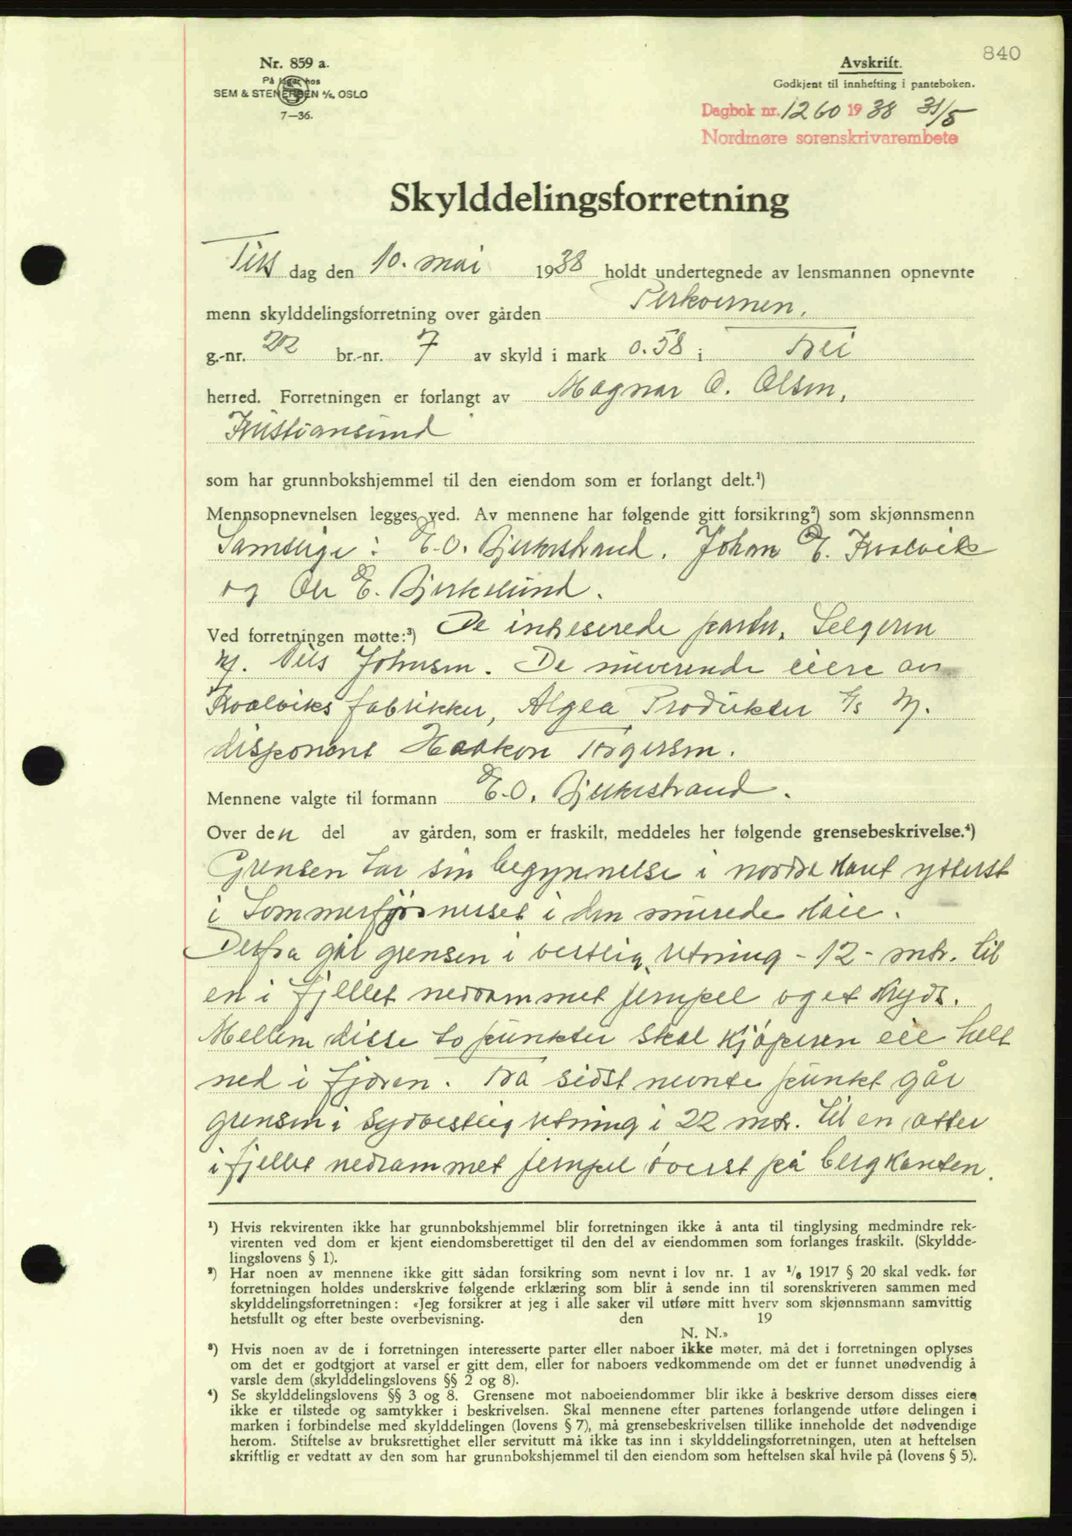 840
Nr. 859 a.
På lager hos
SEM & STENERSEN A/S, OSLO
7—36.
Avskrift.
Godkjent til innhefting i panteboken.
Dagbok nr. 1260 1938 31/5
Nordmøre sorenskrivarembete
Skylddelingsforretning
Tirs dag den 10. mai 1938 holdt undertegnede av lensmannen opnevnte
menn skylddelingsforretning over gården
g.-nr. 22 br.-nr. 7 av skyld i mark 0.58 i Frei
herred. Forretningen er forlangt av Magnar O. Olsen,
Kristiansund
som har grunnbokshjemmel til den eiendom som er forlangt delt.¹)
Mennsopnevnelsen legges ved. Av mennene har følgende gitt forsikring²) som skjønnsmenn
Samtlige: E.O. Bjerkestrand, Johan E. Kvalvik
og Ole E. Bjerkelund.
Ved forretningen møtte:³) De interesserede parter, Selgeren
v/. Nils Johnsen. De nuverende eiere av
Kvalviks fabrikker, Algea Produkter A/S v/.
disponent Haakon Torgersen.
Mennene valgte til formann E.O. Bjerkestrand.
Over den del av gården, som er fraskilt, meddeles her følgende grensebeskrivelse.⁴)
Grensen tar sin begynnelse i nordre kant ytterst
i Sommerfjøsnesset i den murede kaie.
Derfra går grensen i vestlig retning - 12 - mtr. til
en i fjellet nedrammet jernpel og et kryds.
Mellem disse to punkter skal kjøperen eie helt
ned i fjæren. Fra sidst nevnte punkt går
grensen i sydvestlig retning i 22 mtr. til en atter
i fjellet nedrammet jernpel øverst på bergkanten.
¹) Hvis rekvirenten ikke har grunnbokshjemmel blir forretningen ikke å anta til tinglysing medmindre rek-
virenten ved dom er kjent eiendomsberettiget til den del av eiendommen som forlanges fraskilt. (Skyldde-
lingslovens § 1).
²) Har noen av mennene ikke gitt sådan forsikring som nevnt i lov nr. 1 av 1/6 1917 § 20 skal vedk. før
forretningen holdes underskrive følgende erklæring som blir å sende inn til sorenskriveren sammen med
skylddelingsforretningen: «Jeg forsikrer at jeg i alle saker vil utføre mitt hverv som skjønnsmann samvittig
hetsfullt og efter beste overbevisning. den 19
N. N.»
³) Hvis noen av de i forretningen interesserte parter eller naboer ikke møter, må det i forretningen oplyses
om det er godtgjort at varsel er gitt dem, eller for naboers vedkommende om det er funnet unødvendig å
varsle dem (skylddelingslovens §§ 2 og 8).
⁴) Se skylddelingslovens §§ 3 og 8. Grensene mot naboeiendommer blir ikke å beskrive dersom disses eiere
ikke er tilstede og samtykker i beskrivelsen. Skal mennene efter partenes forlangende utføre delingen i
marken i forbindelse med skylddelingen (lovens § 7), må grensebeskrivelsen tillike inneholde det nødvendige
herom. Stiftelse av bruksrettighet eller servitutt må ikke tas inn i skylddelingsforretningen, uten at heftelsen
skriftlig er vedtatt av den som har grunnbokshjemmel til den eiendom som heftelsen skal hvile på (lovens § 5).